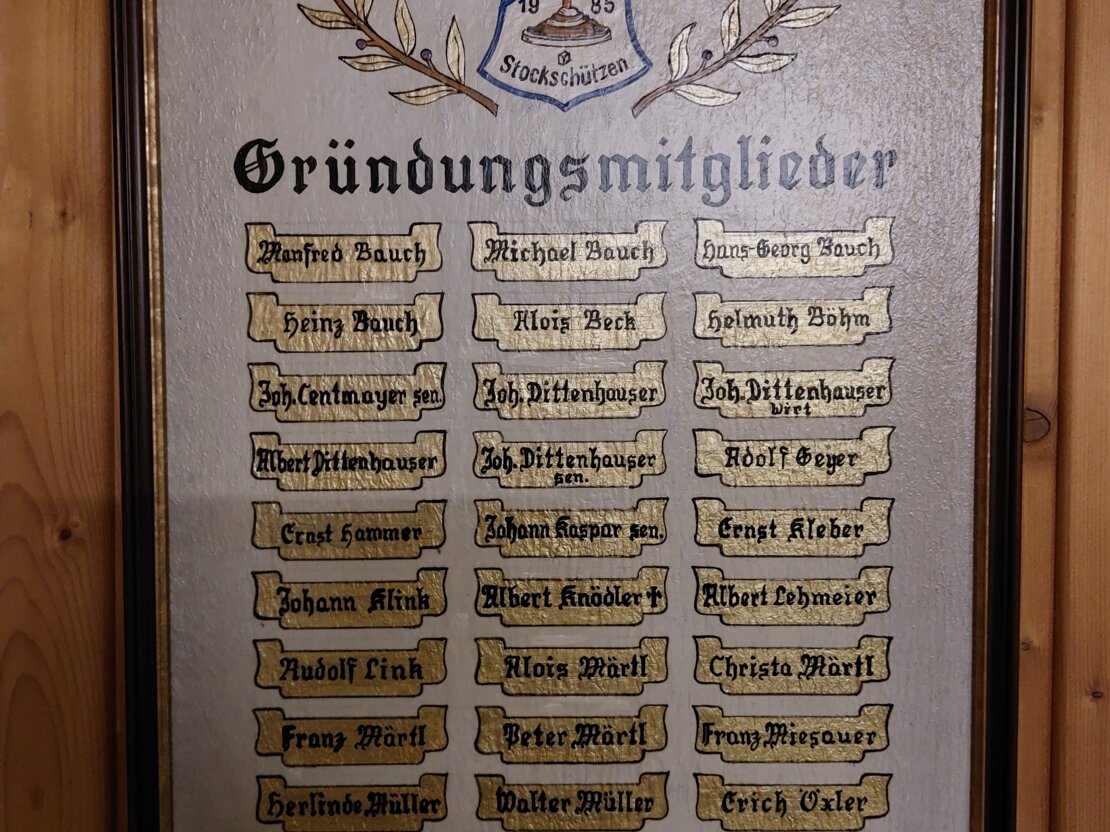 19 85
Stockschützen
Gründungsmitglieder
Manfred Bauch Michael Bauch Hans-Georg Bauch
Heinz Bauch Alois Beck Helmuth Böhm
Joh. Centmayer sen. Joh. Dittenhauser Joh. Dittenhauser
Wirt
Albert Dittenhauser Joh. Dittenhauser Adolf Geyer
sen.
Ernst Hammer Johann Kaspar sen. Ernst Kleber
Johann Klink Albert Knödler † Albert Lehmeier
Rudolf Link Alois Märtl Christa Märtl
Franz Märtl Peter Märtl Franz Miesauer
Herlinde Müller Walter Müller Erich Oxler